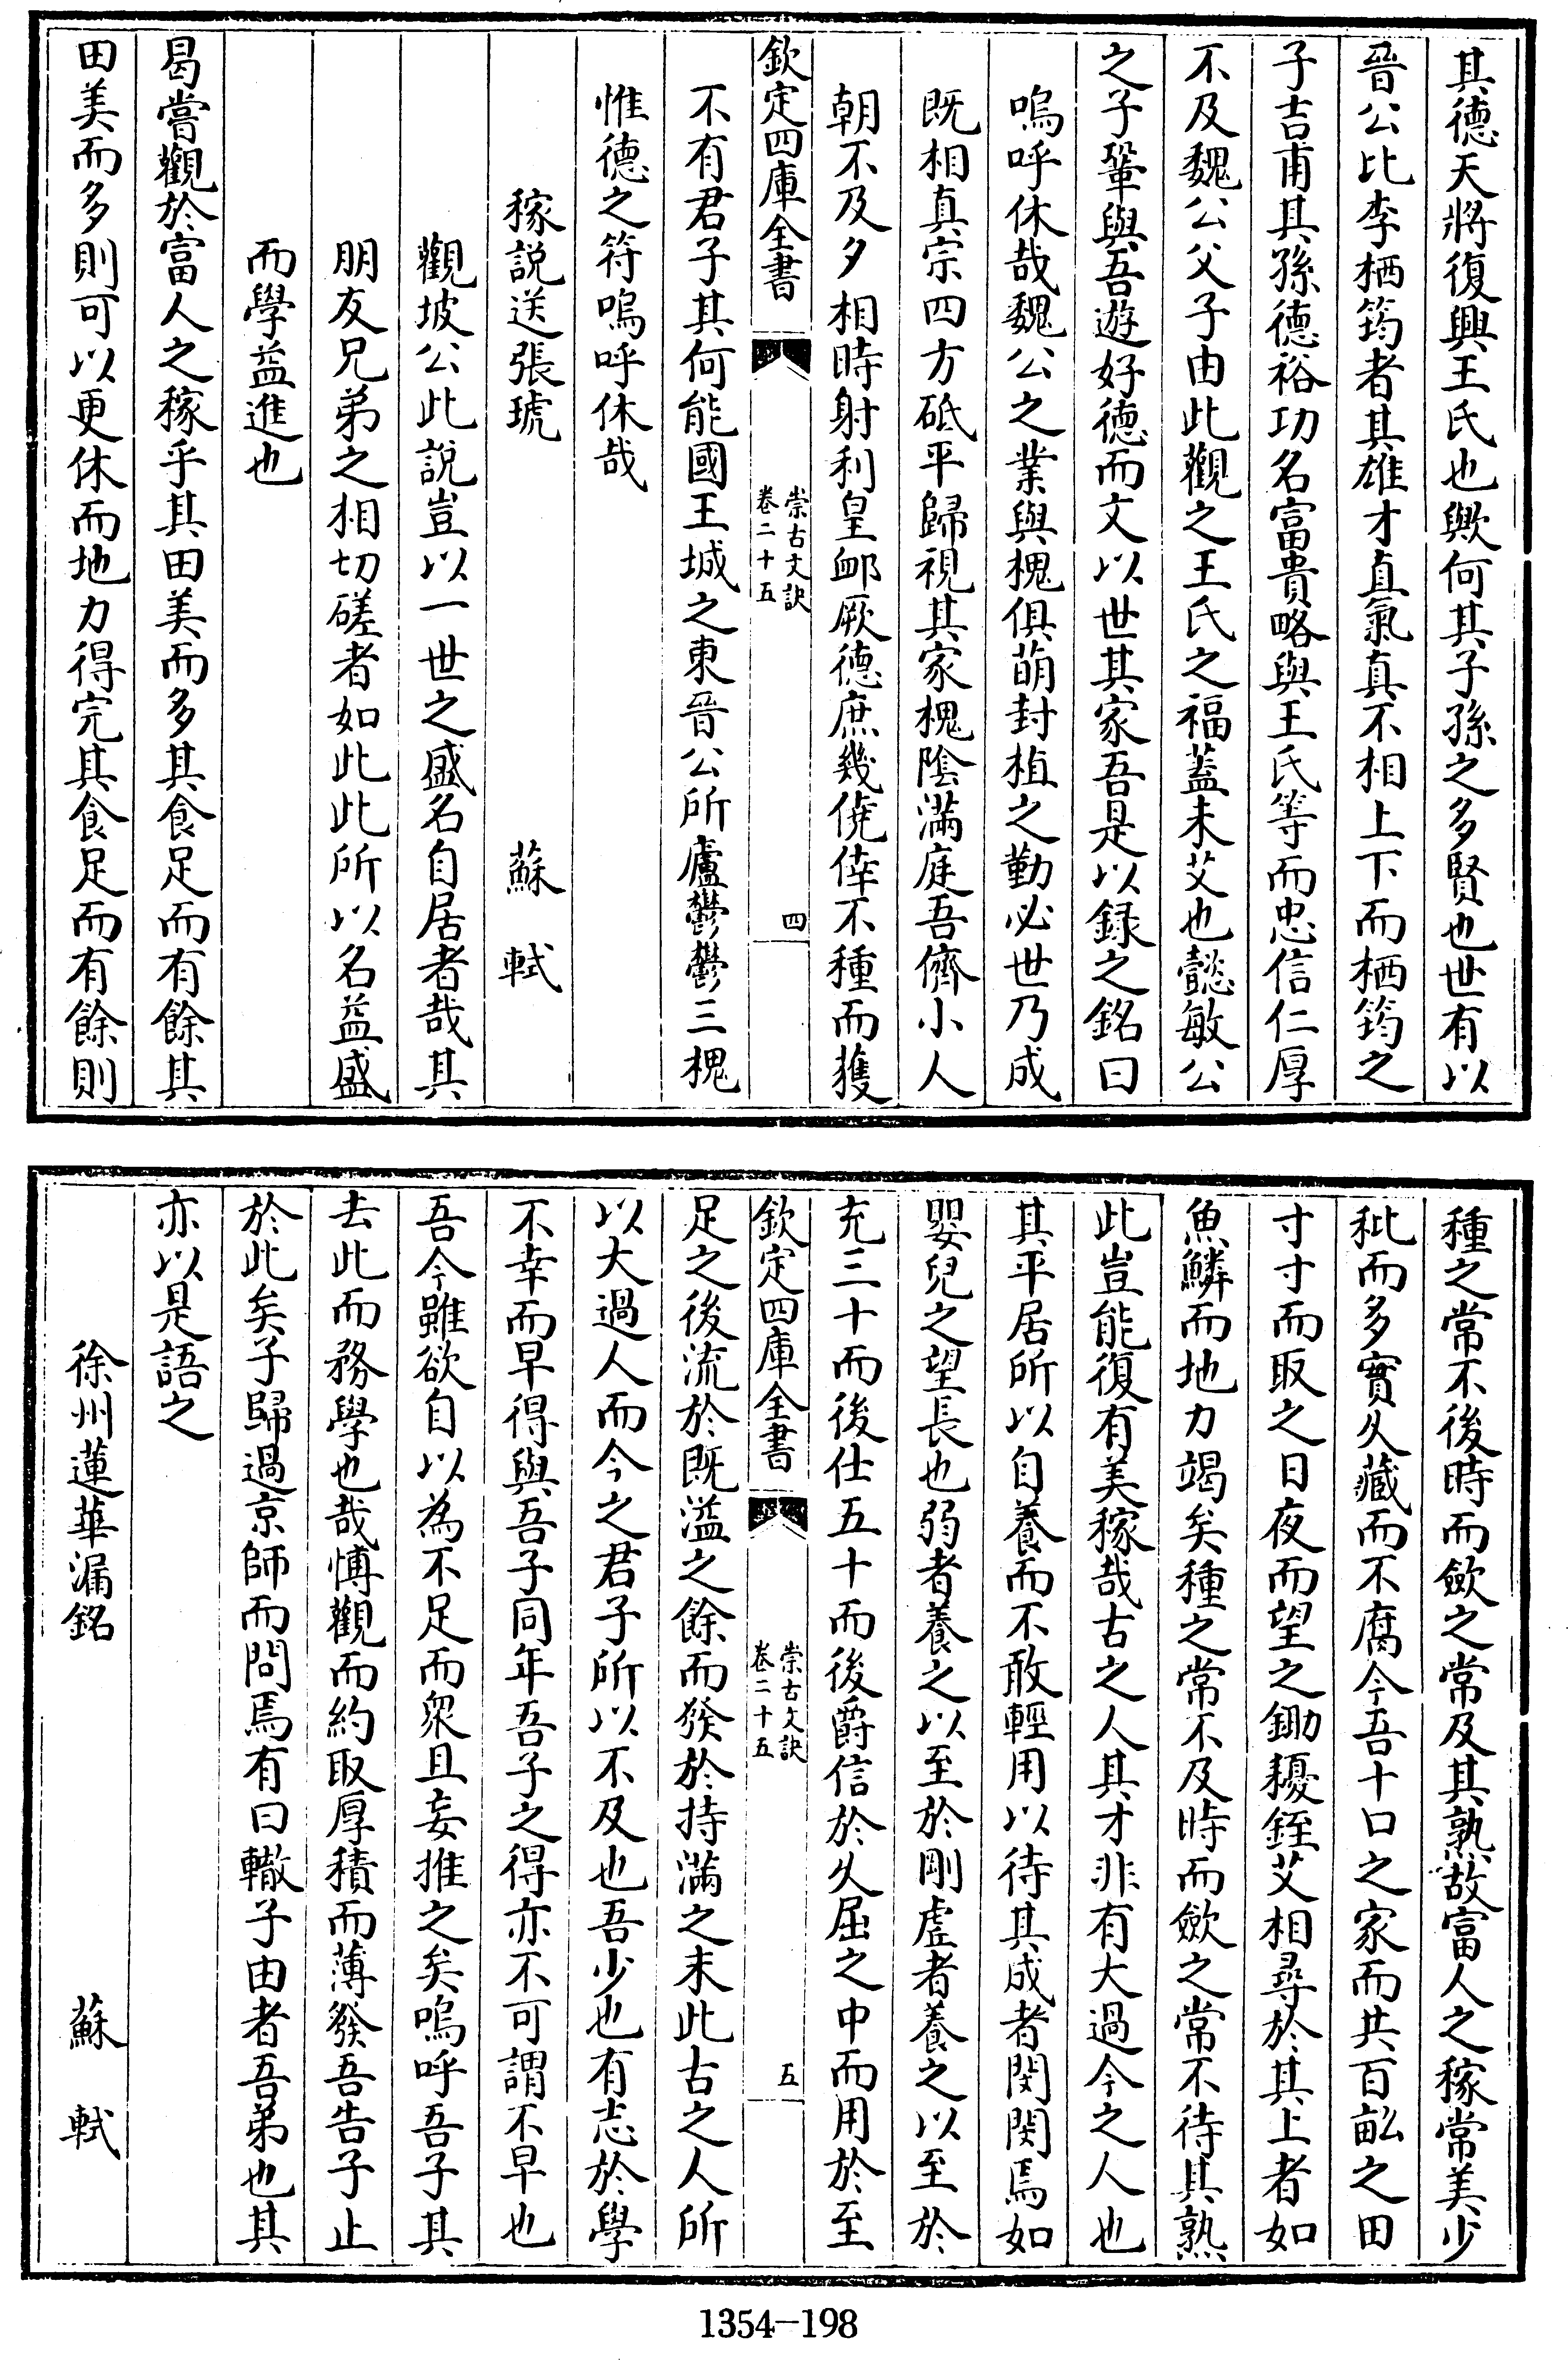 其德天將復興王氏也歟何其子孫之多賢也世有以
晉公比李栖筠者其雄才直氣真不相上下而栖筠之
子吉甫其孫德裕功名富貴略與王氏等而忠信仁厚
不及魏公父子由此觀之王氏之福蓋未艾也懿敏公
之子鞏與吾遊好德而文以世其家吾是以録之銘曰
嗚呼休哉魏公之業與槐俱萌封植之勤必世乃成
既相真宗四方砥平歸視其家槐陰滿庭吾儕小人
朝不及夕相時射利皇卹厥德庶幾僥倖不種而獲
欽定四庫全書
崇古文訣
卷二十五
四
不有君子其何能國王城之東晉公所廬鬱鬱三槐
惟德之符嗚呼休哉
稼説送張琥
蘇軾
觀坡公此説豈以一世之盛名自居者哉其
朋友兄弟之相切磋者如此此所以名益盛
而學益進也
曷嘗觀於富人之稼乎其田美而多其食足而有餘其
田美而多則可以更休而地力得完其食足而有餘則
種之常不後時而斂之常及其熟故富人之稼常美少
秕而多實久藏而不腐今吾十口之家而共百畝之田
寸寸而取之日夜而望之鋤耰銍艾相尋於其上者如
魚鱗而地力竭矣種之常不及時而斂之常不待其熟
此豈能復有美稼哉古之人其才非有大過今之人也
其平居所以自養而不敢輕用以待其成者閔閔焉如
嬰兒之望長也弱者養之以至於剛虛者養之以至於
充三十而後仕五十而後爵信於久屈之中而用於至
欽定四庫全書
崇古文訣
卷二十五
五
足之後流於既溢之餘而發於持滿之末此古之人所
以大過人而今之君子所以不及也吾少也有志於學
不幸而早得與吾子同年吾子之得亦不可謂不早也
吾今雖欲自以為不足而衆且妄推之矣嗚呼吾子其
去此而務學也哉博觀而約取厚積而薄發吾告子止
於此矣子歸過京師而問焉有曰轍子由者吾弟也其
亦以是語之
徐州蓮華漏銘
蘇軾
1354-198